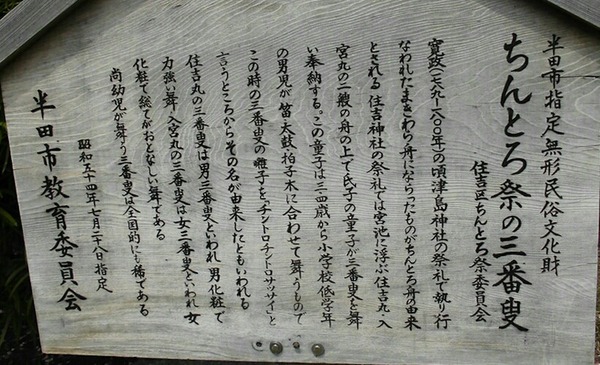 半田市指定無形民俗文化財
ちんとろ祭の三番叟
住吉区ちんとろ祭委員会
寛政(一七八九~一八〇〇年)の頃津島神社の祭礼で執り行
なわれたまきわら舟にならったものがちんとろ舟の由来
とされる 住吉神社の祭礼では宮池に浮ぶ住吉丸・入
宮丸の二艘の舟の上で氏子の童子が三番叟を舞
い奉納する。この童子は三四歳から小学校低学年
の男児が笛・太鼓・拍子木に合わせて舞うもので
この時の三番叟の囃子を「チントロチントロサッサイ」と
言うところからその名が由来したともいわれる
住吉丸の三番叟は男三番叟といわれ 男化粧で
力強い舞 入宮丸の三番叟は女三番叟といわれ 女
化粧で総てがおとなしい舞である
尚幼児が舞う三番叟は全国的にも稀である
昭和五十四年七月二十八日指定
半田市教育委員会